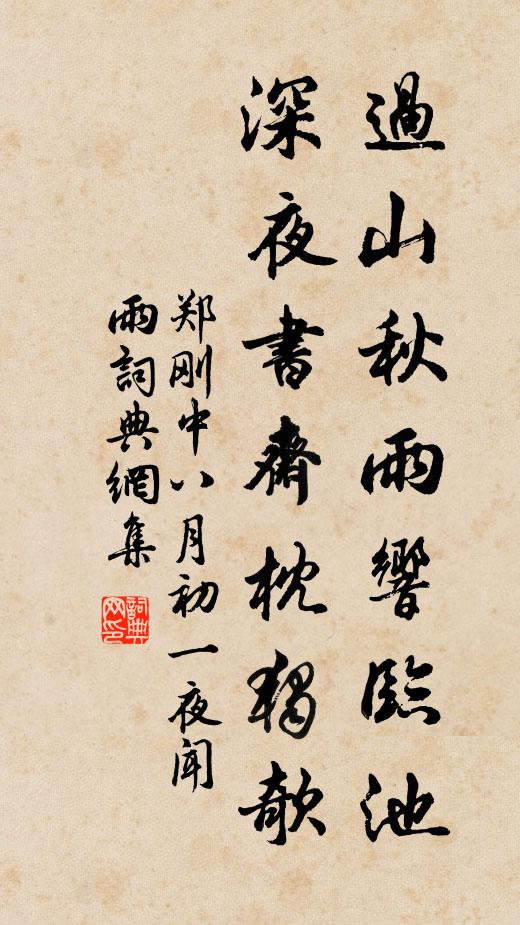 過山秋雨響臨池
深夜書齋枕獨欹
郑刚中八月初一夜聞
雨詞典網集
詞典网印